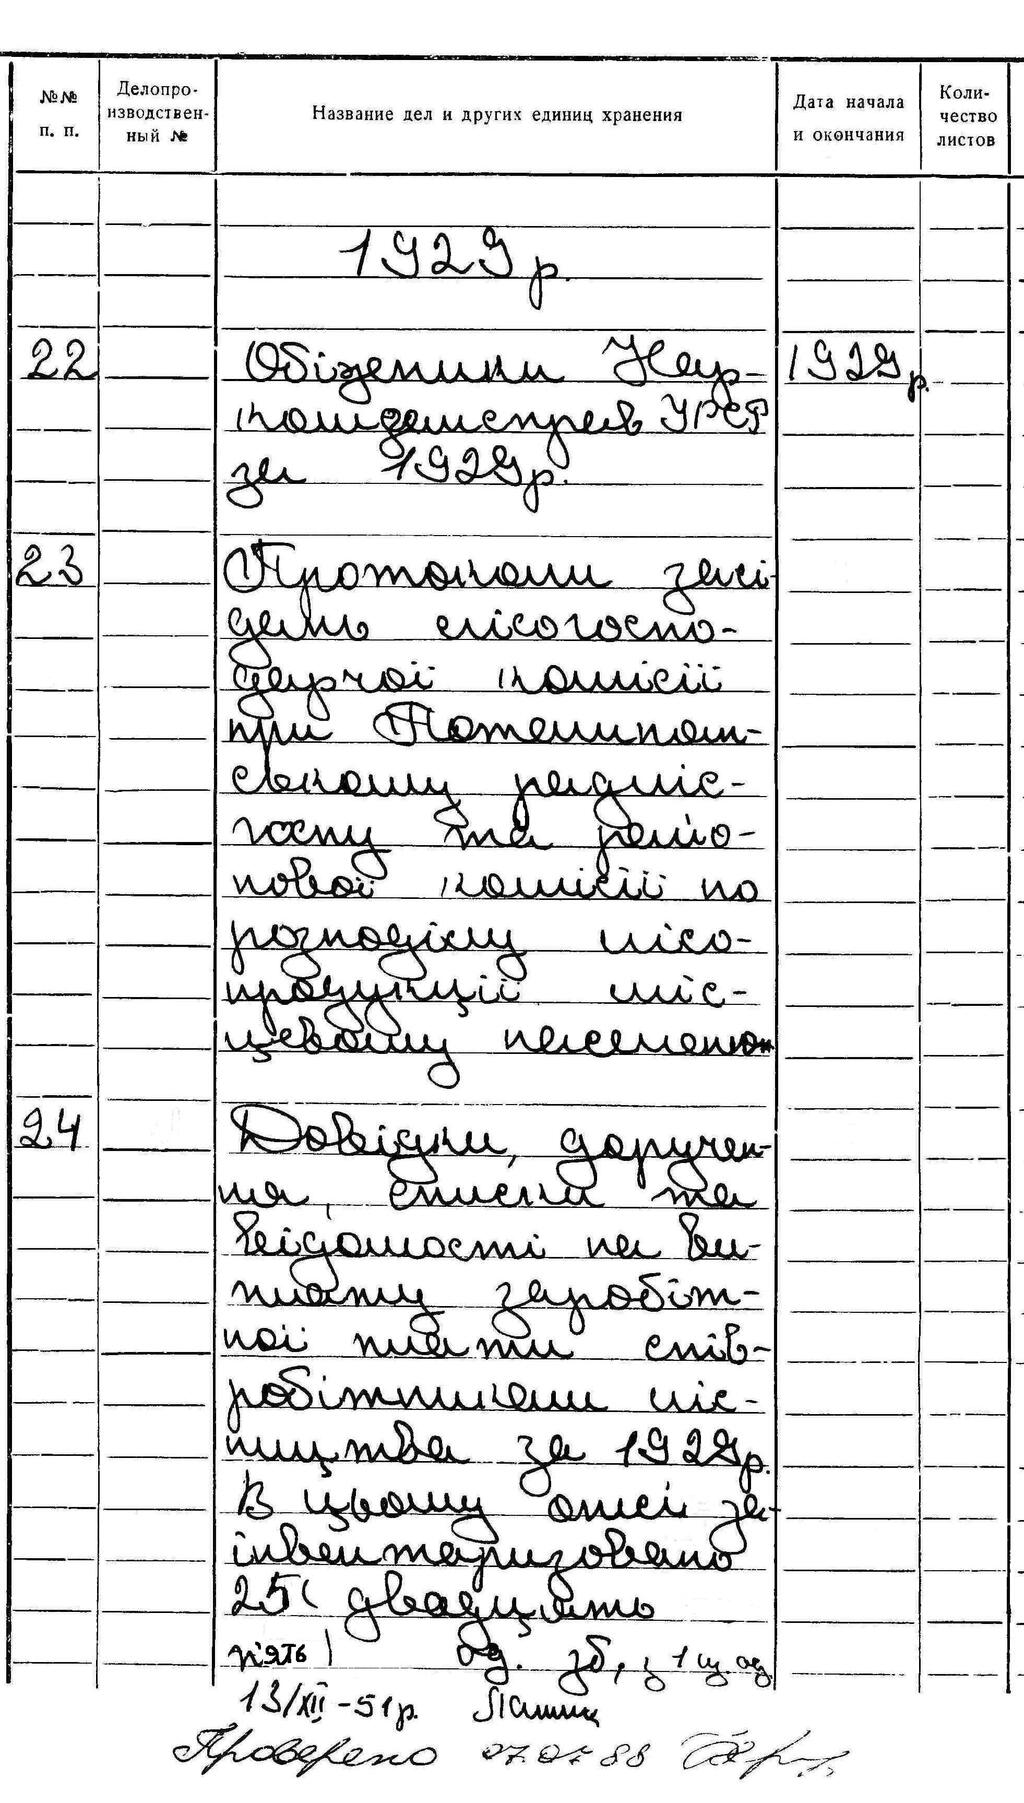 №№ п. п.
Делопро-изводствен-ный №
Название дел и других единиц хранения
Дата начала и окончания
Коли-чество листов
1929 р.
22 Обіжники Нар- 1929 р.
комземсправ УРСР
за 1929 р.
23 Протоколи засі-
дань лісогоспо-
дарчої комісії
при
ському радліс-
госпу та райо-
нової комісії по
розподілу лісо-
продукції міс-
цевому населенню
24 Довідки, доручен-
ня, списки та
відомості на ви-
плату заробіт-
ної плати спів-
робітникам ліс-
ництва за 1929 р.
В цьому описі за-
інвентаризовано
25 ( двадцять
п'ять ) од. зб, з 1 по
13/XII-51 р.
Проверено 27.07.88